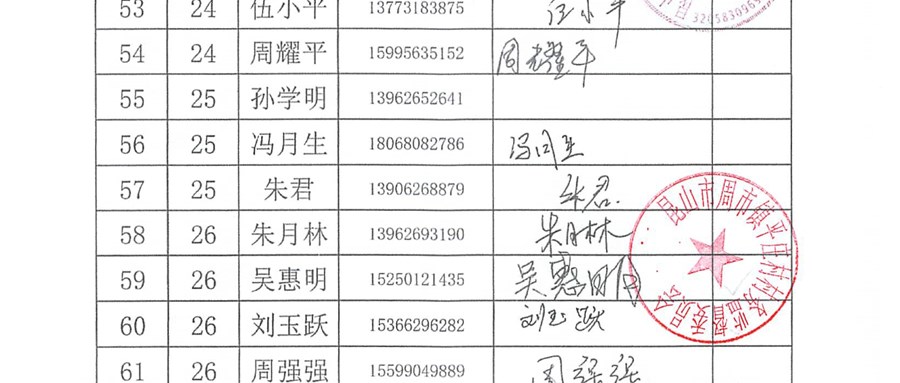 53 24 伍小平 13773183875 伍小平
3205830969
54 24 周耀平 15995635152 周耀平
55 25 孙学明 13962652641
56 25 冯月生 18068082786 冯月生
57 25 朱君 13906268879 朱君
58 26 朱月林 13962693190 朱月林
59 26 吴惠明 15250121435 吴惠明
60 26 刘玉跃 15366296282 刘玉跃
61 26 周强强 15599049889 周强强
昆山市周市镇平庄村村务监督委员会